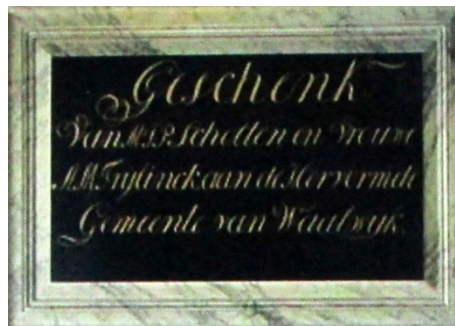 Geschenk
Van M.J.P. Scholten en Vrouwe
A.M. Frylinck aan de Hervormde
Gemeente van Waalwijk.